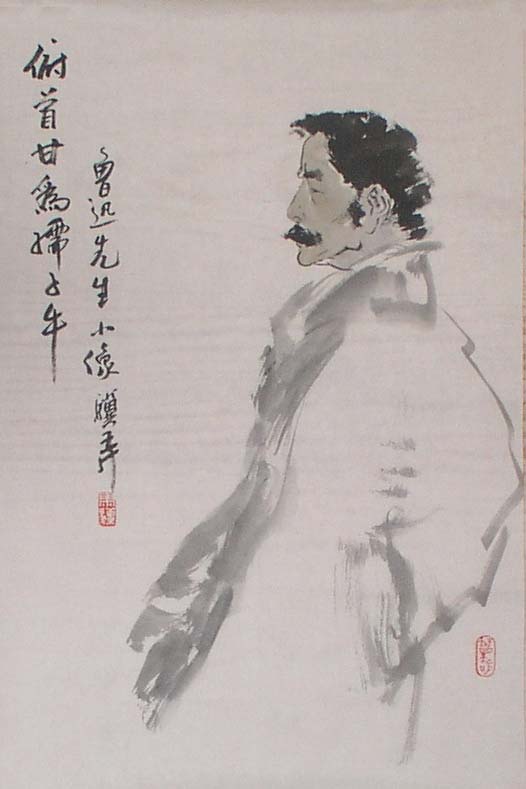 俯首甘為孺子牛
魯迅先生小像